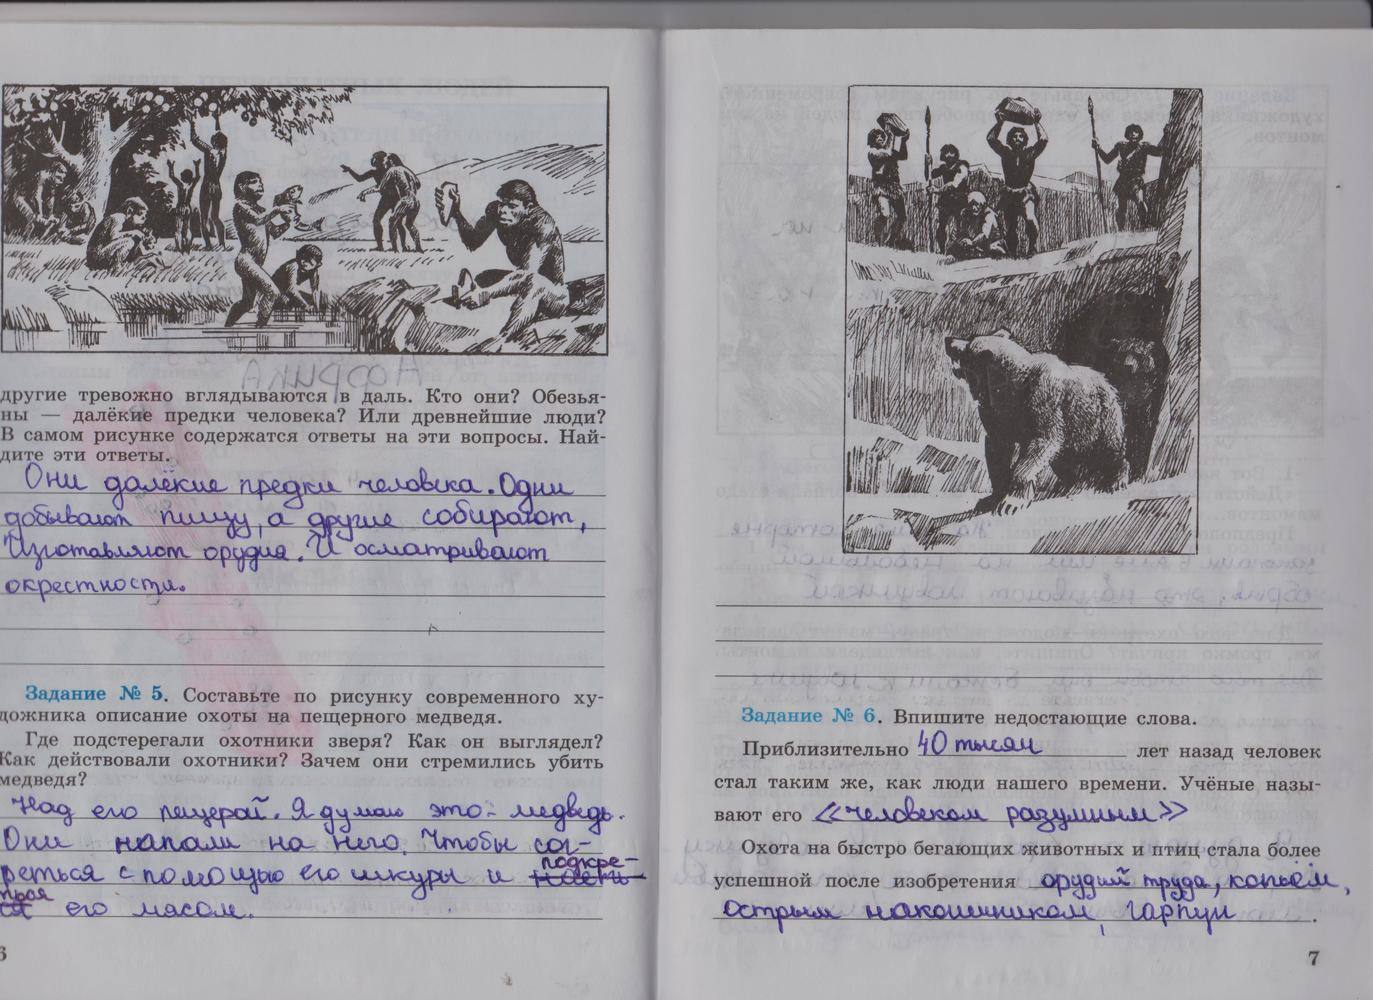 другие тревожно вглядываются в даль. Кто они? Обезья-
ны — далёкие предки человека? Или древнейшие люди?
В самом рисунке содержатся ответы на эти вопросы. Най-
дите эти ответы.
Они далёкие предки человека. Одни
добывают пищу, а другие собирают,
Изготавляют орудия. И осматривают
окрестности.
Задание № 5. Составьте по рисунку современного ху-
дожника описание охоты на пещерного медведя.
Где подстерегали охотники зверя? Как он выглядел?
Как действовали охотники? Зачем они стремились убить
медведя?
Над его пещерай. Я думаю это - медведь.
Они напали на него. Чтобы сог-
реться с помощью его шкуры и подкре-
ться его мясом.
6
Задание № 6. Впишите недостающие слова.
Приблизительно 40 тысяч лет назад человек
стал таким же, как люди нашего времени. Учёные назы-
вают его «человеком разумным»
Охота на быстро бегающих животных и птиц стала более
успешной после изобретения орудий труда, копьём,
острым наконечником, гарпун.
7